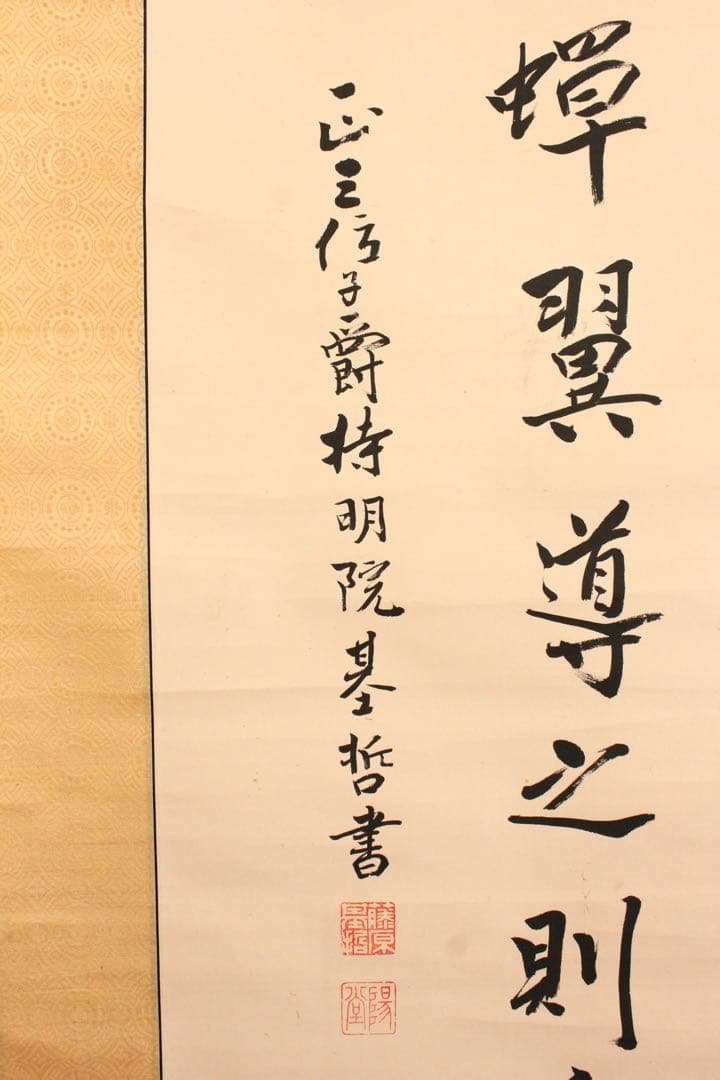 蟬翼導之則
正三位子爵持明院基哲書
藤原
基哲
陽堂